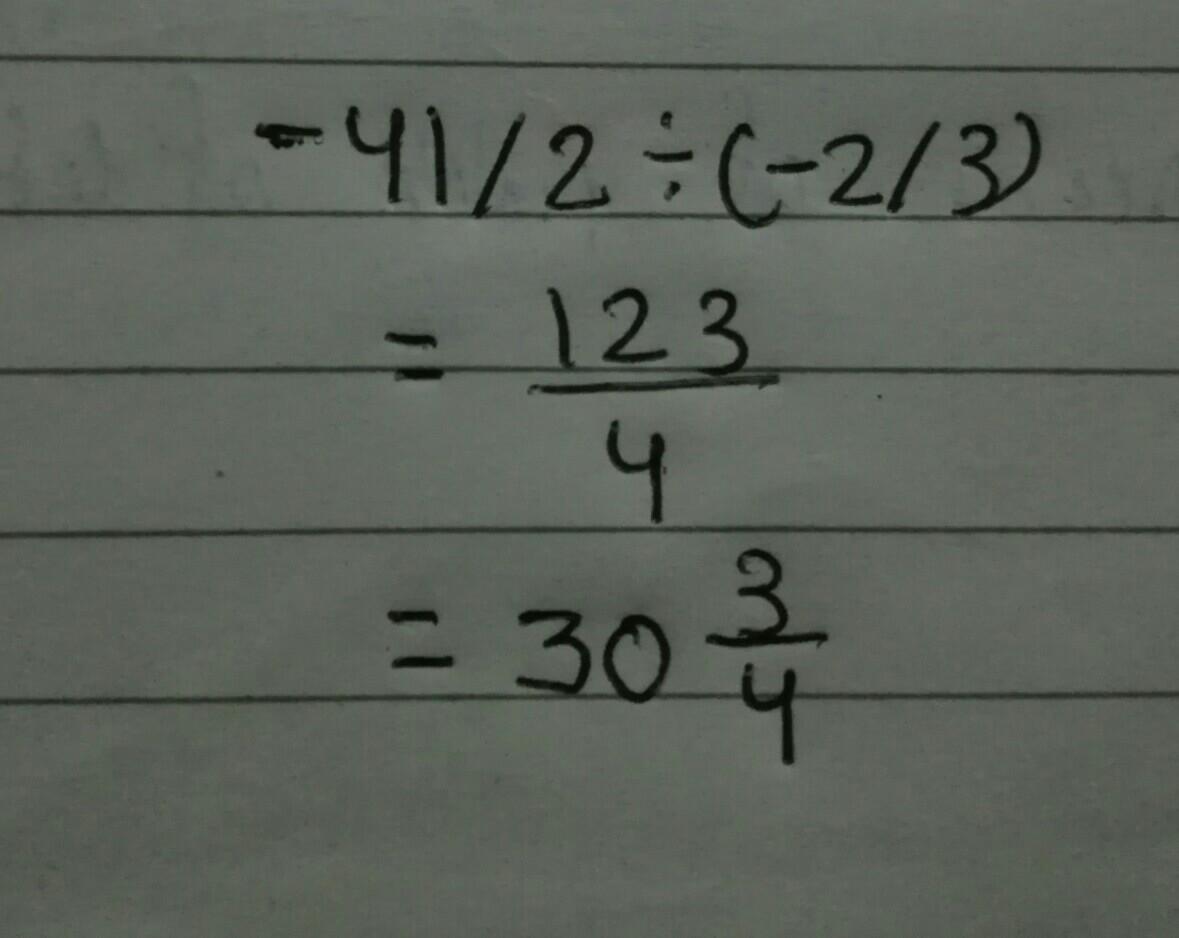 -41/2 ÷ (-2/3)
= 123/4
= 30 3/4